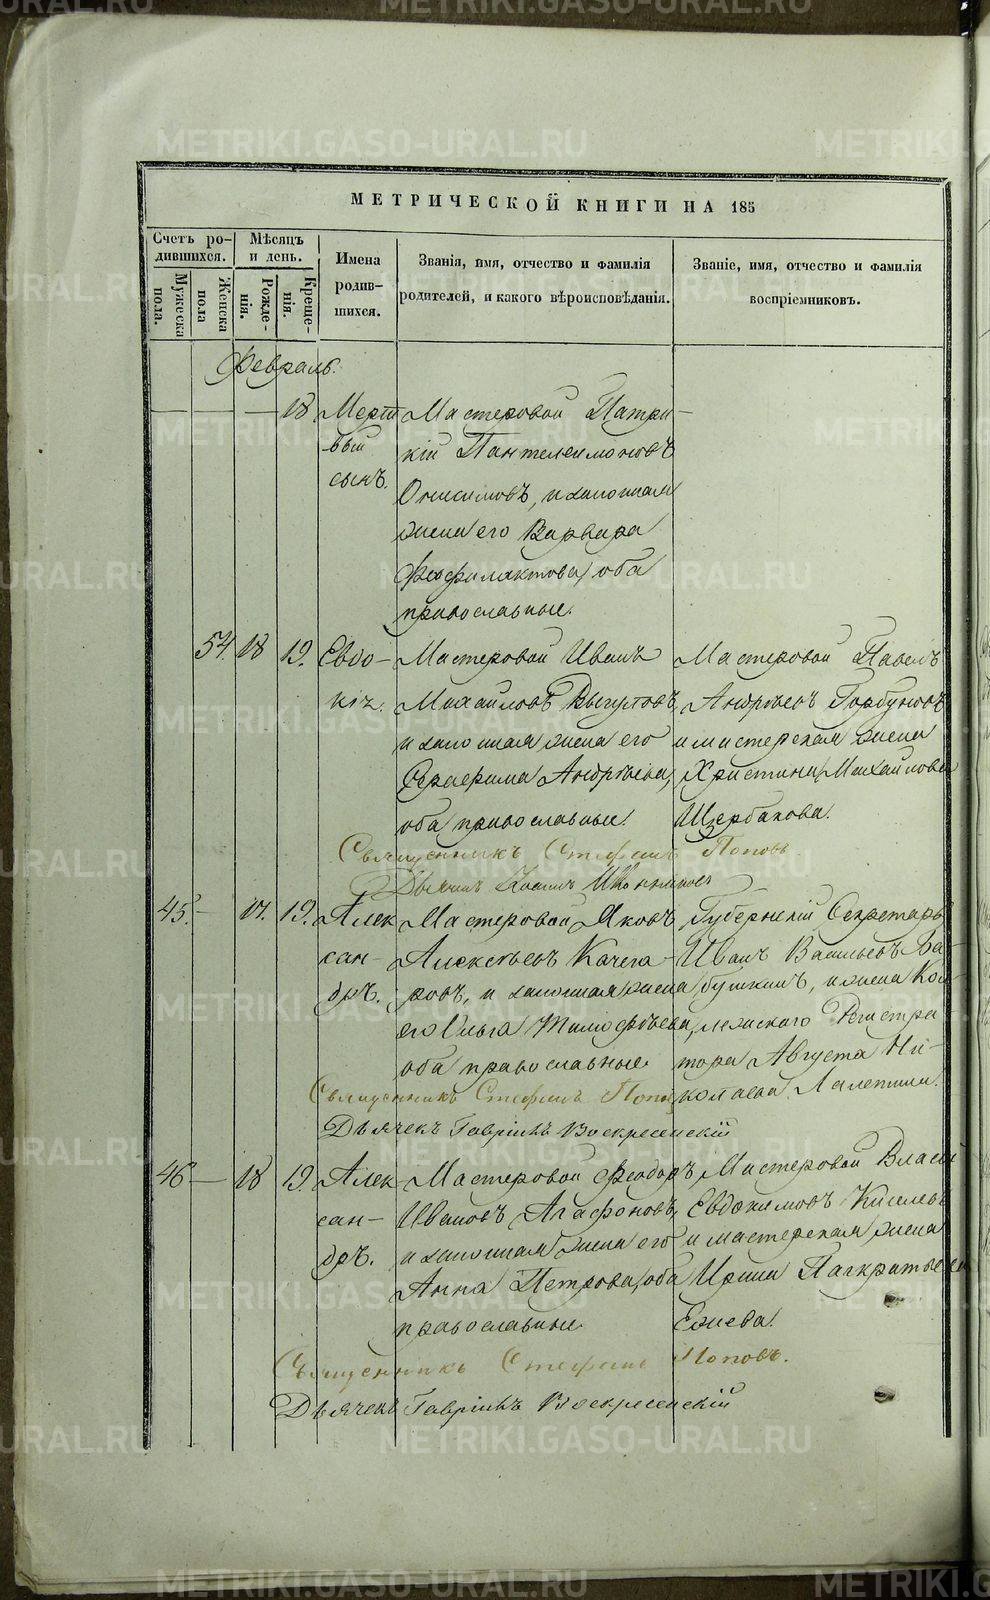 МЕТРИЧЕСКОЙ КНИГИ НА 185
Счетъ ро-
дившихся.
Мужеска
пола.
Женска
пола
Мѣсяцъ
и день.
Рожде-
нія.
Креще-
нія.
Имена
родив-
шихся.
Званія, имя, отчество и фамилія
родителей, и какого вѣроисповѣданія.
Званіе, имя, отчество и фамилія
воспріемниковъ.
Февраль.
— — — 18 Мерт
вый
сынъ.
Мастеровой Патри-
кій Пантелеимоновъ
Онисимовъ, и законная
жена его Варвара
Феофилактова, оба
православные.
54. 18 19. Евдо-
кія.
Мастеровой Иванъ
Михайловъ Выгуловъ,
и законная жена его
Серафима Андрѣева,
оба православные.
Мастеровой Павелъ
Андрѣевъ Горбуновъ
и мастерская жена
Христина Михайлова
Щербакова.
Священникъ Стефанъ Поповъ
Дьячекъ Иконниковъ
45. — 17. 19. Алек
сан-
дръ.
Мастеровой Яковъ
Алексѣевъ Качега-
ровъ, и законная жена
его Ольга Тимофѣева,
оба православные.
Губернскій Секретарь
Иванъ Васильевъ Ба-
бушкинъ, и жена Кол-
лежскаго Регистра
тора Августа Ни-
колаева Лалетина.
Священникъ Стефанъ Поповъ
Дьячекъ Гавріилъ Воскресенскій
46 — 18 19. Алек-
сан-
дръ.
Мастеровой Феодоръ
Ивановъ Агафоновъ,
и законная жена его
Анна Петрова, оба
православные
Мастеровой Власъ
Евдокимовъ Киселевъ
и мастерская жена
Ирина Панкратьева
Ежева.
Священникъ Стефанъ Поповъ.
Дьячекъ Гавріилъ Воскресенскій
METRIKI.GASO-URAL.RU